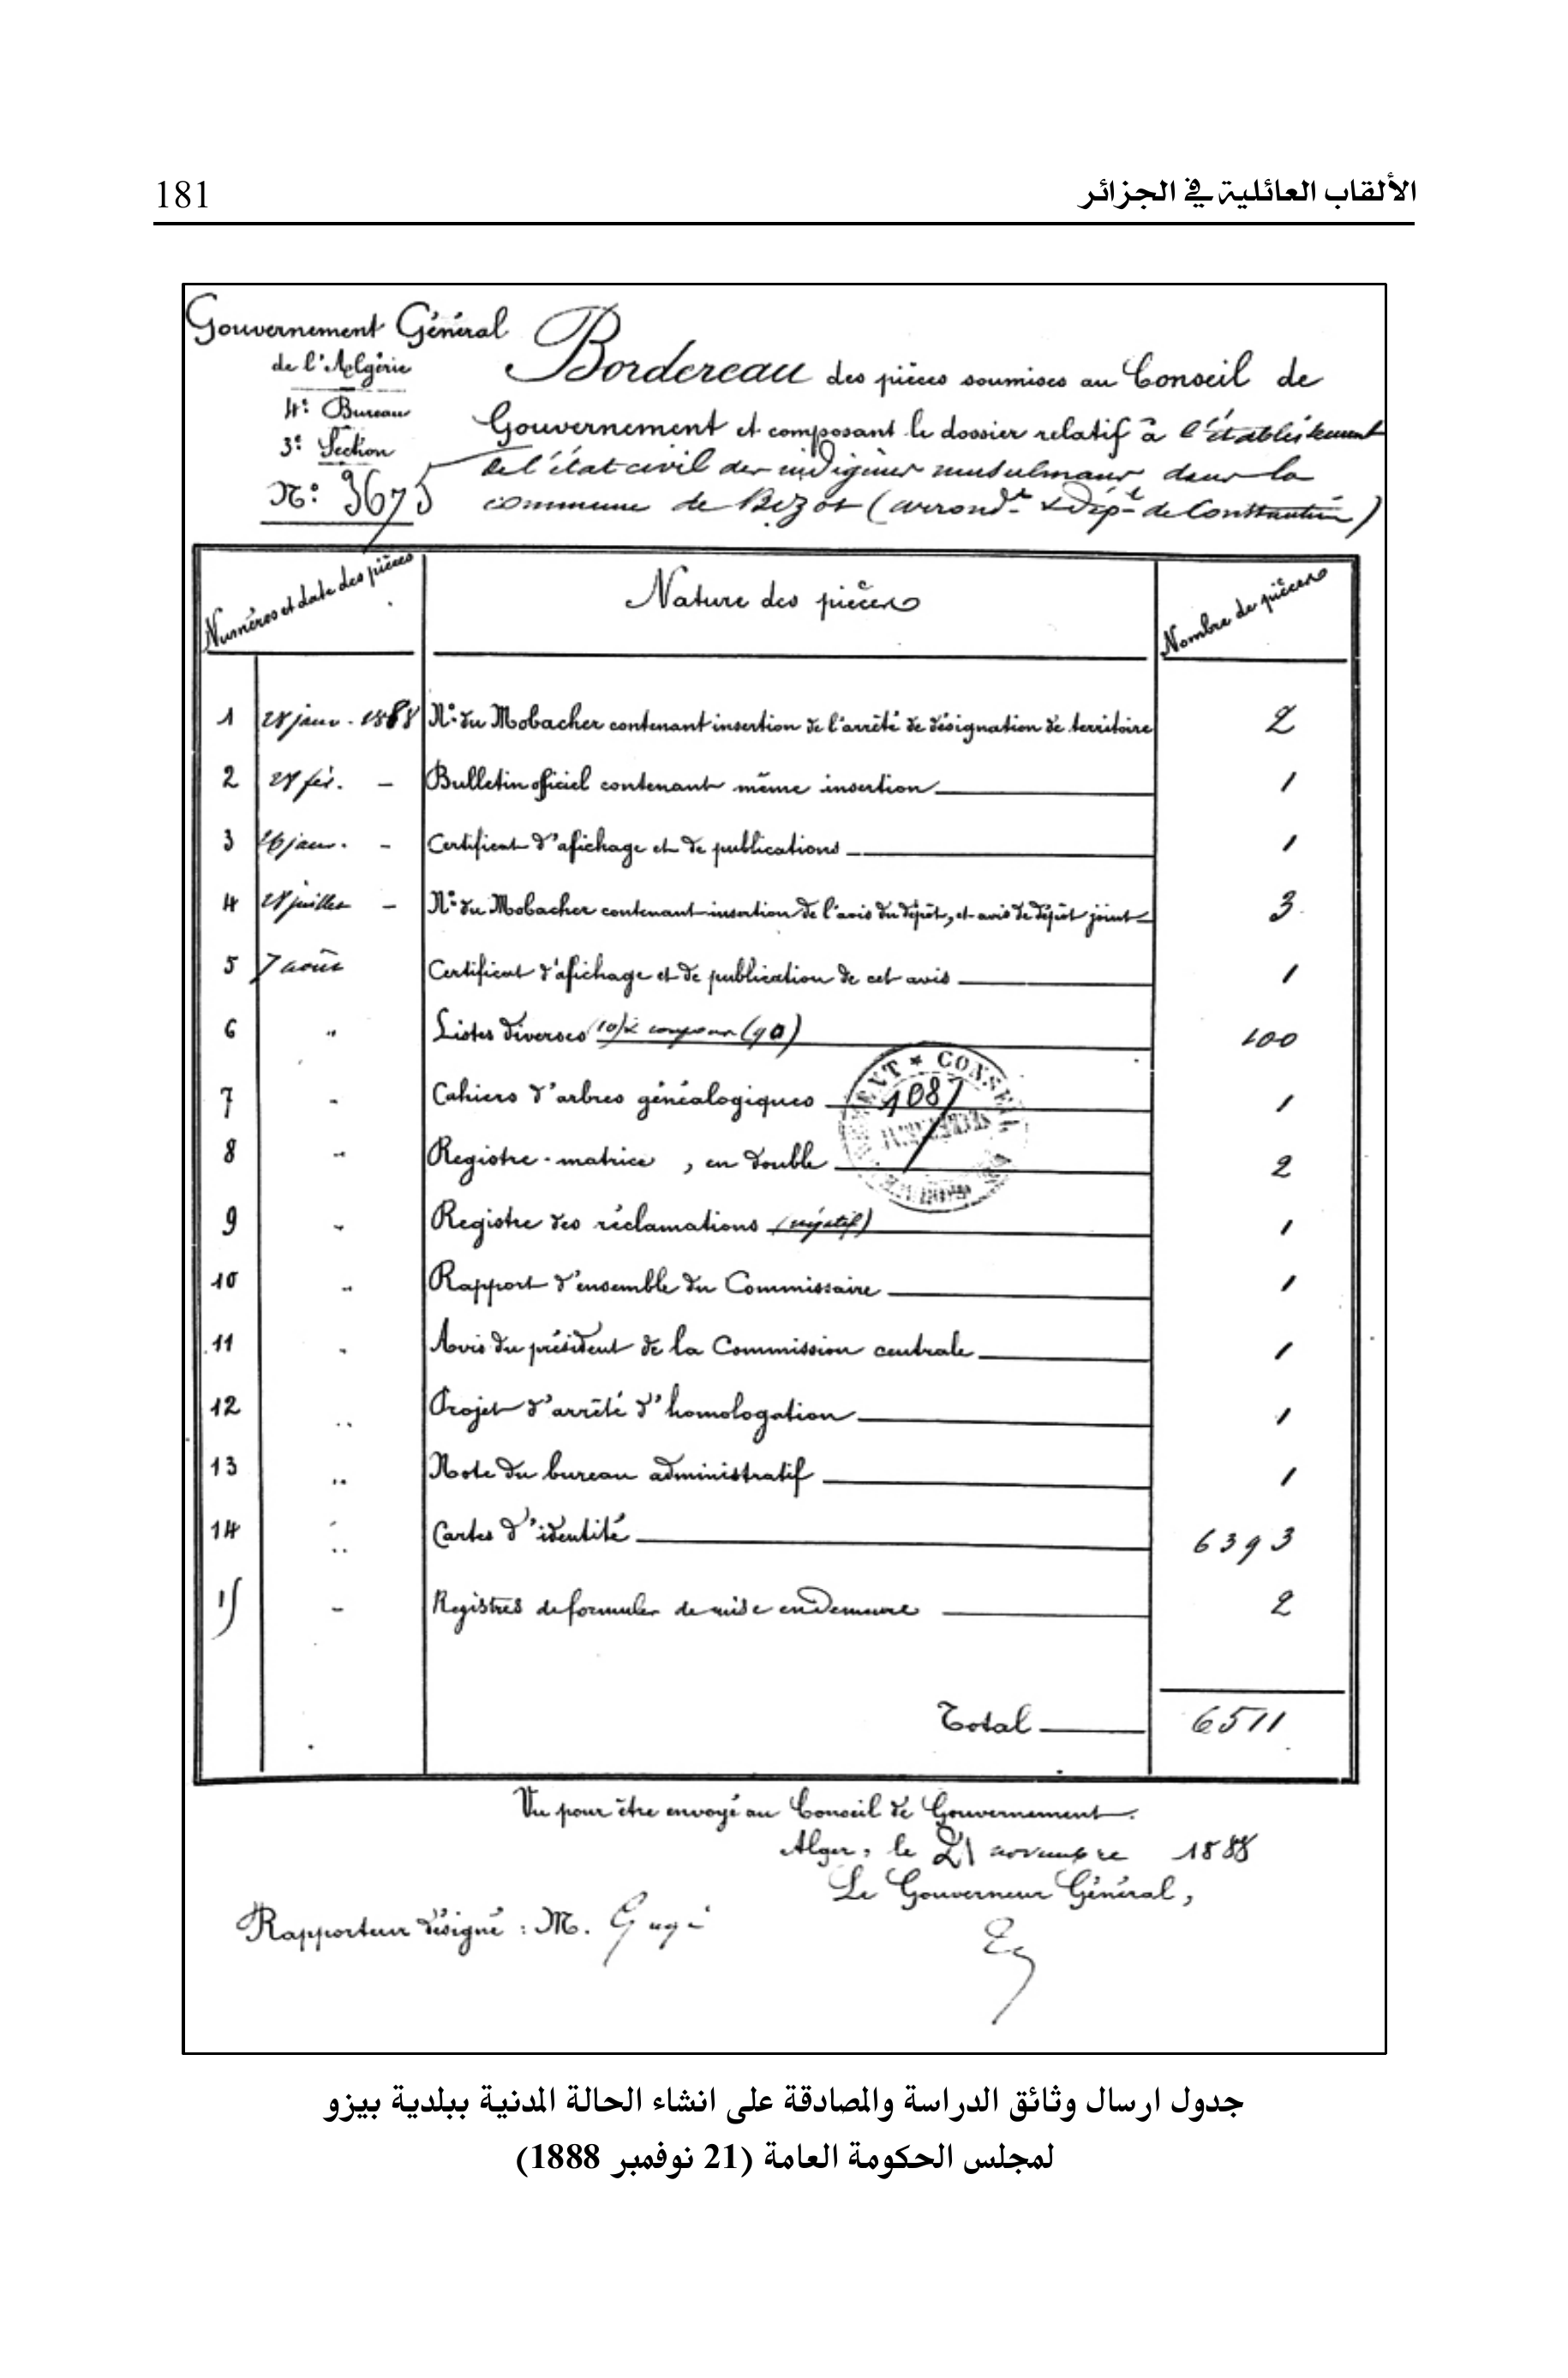 181
الألقاب العائلية في الجزائر
Gouvernement Général
de l'Algérie
4e Bureau
3e Section
No: 3675
Bordereau des pièces soumises au Conseil de
Gouvernement et composant le dossier relatif à l'établissement
de l'état civil des indigènes musulmans dans la
commune de Bizot (arrondt & Dépt de Constantine)
Numéros et date des pièces
Nature des pièces
Nombre de pièces
1 28 janv. 1888 No du Mobacher contenant insertion de l'arrêté de désignation de territoire 2
2 28 fév. - Bulletin officiel contenant même insertion 1
3 26 janv. - Certificat d'afichage et de publications 1
4 28 juillet - No du Mobacher contenant insertion de l'avis du dépôt, et avis de dépôt joint 3
5 7 août Certificat d'afichage et de publication de cet avis 1
6 " Listes diverses 100
7 - Cahiers d'arbres généalogiques 1
CONSEIL
1087
8 " Registre-matrice, en double 2
9 " Registre des réclamations (négatif) 1
10 " Rapport d'ensemble du Commissaire 1
11 " Avis du président de la Commission centrale 1
12 " Projet d'arrêté d'homologation 1
13 " Note du bureau administratif 1
14 " Cartes d'identité 6393
15 - Registres de formules de mise en demeure 2
Total 6511
Vu pour être envoyé au Conseil de Gouvernement.
Alger, le 21 novembre 1888
Le Gouverneur Général,
Rapporteur désigné : M.
جدول ارسال وثائق الدراسة والمصادقة على انشاء الحالة المدنية ببلدية بيزو
لمجلس الحكومة العامة (21 نوفمبر 1888)